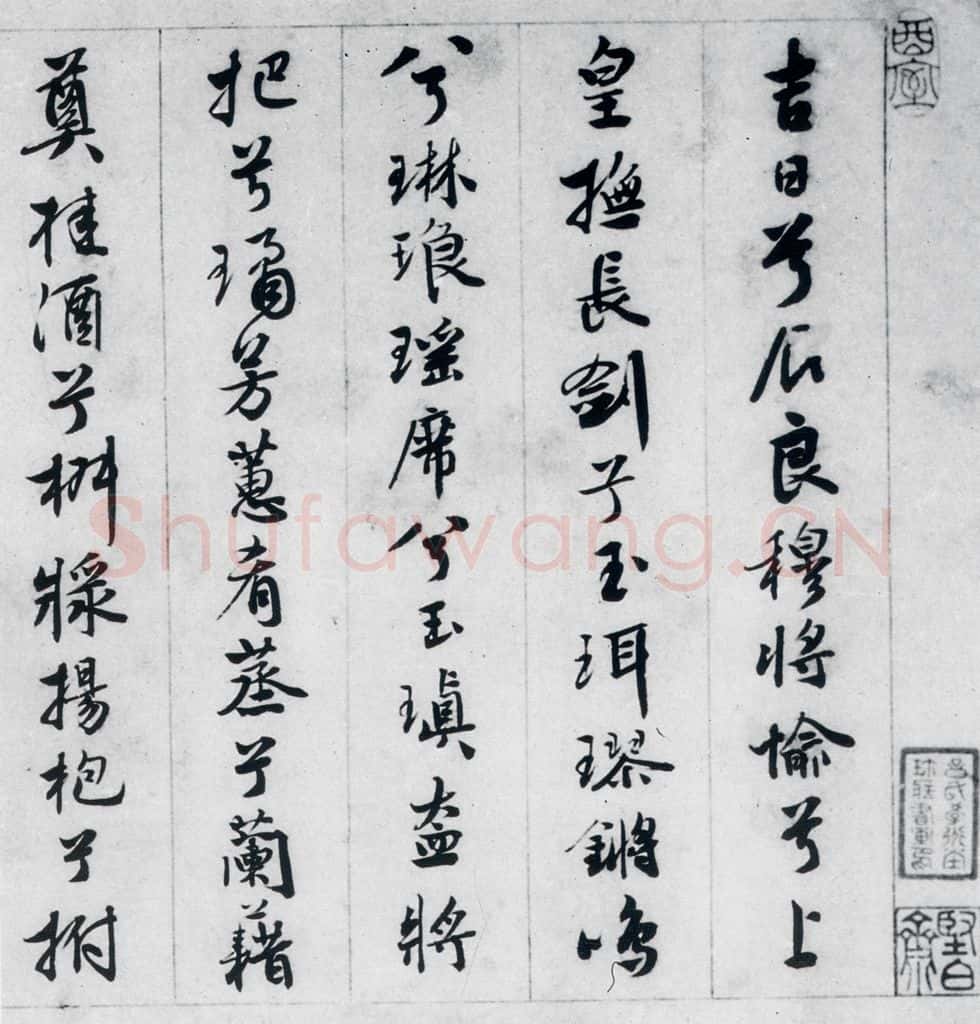 吉日兮辰良穆將愉兮上
皇撫長劍兮玉珥璆鏘鳴
兮琳琅瑶席兮玉瑱盍將
把兮瓊芳蕙肴蒸兮蘭藉
奠桂酒兮椒漿揚枹兮拊
堅白齋
Shufawang.CN